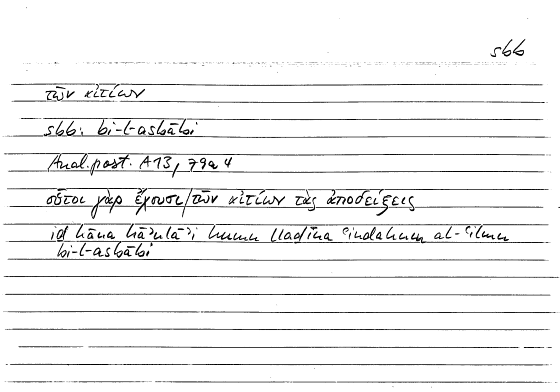 sbb
τῶν αἰτίων
sbb: bi-l-asbābi
Anal. post. A 13, 79a4
οὗτοι γὰρ ἔχουσι/τῶν αἰτίων τὰς ἀποδείξεις
iḏ kāna hāʾulāʾi humu lladīna ʿindahum al-ʿilmu
bi-l-asbābi